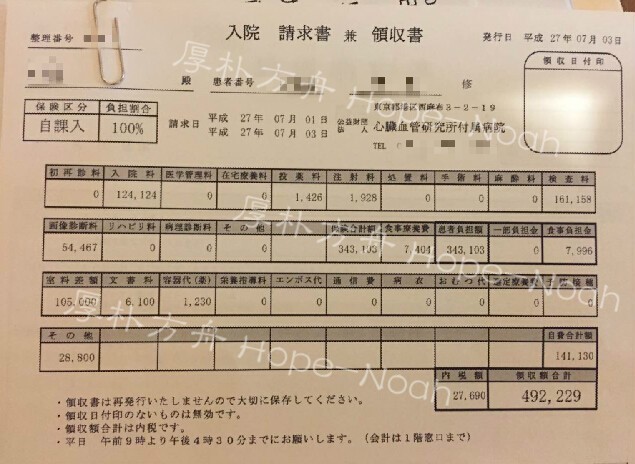 入院 請求書 兼 領収書
整理番号
発行日 平成 27年 07月 03日
殿 患者番号 修
領収日付印
保険区分 負担割合
自課入 100%
請求日 平成 27年 07月 01日
平成 27年 07月 03日
東京都港区西麻布3-2-19
公益財団法人 心臓血管研究所付属病院
TEL
初再診料 入院料 医学管理料 在宅療養料 投薬料 注射料 処置料 手術料 麻酔料 検査料
0 124,124 0 0 1,426 1,928 0 0 0 161,158
画像診断料 リハビリ料 病理診断料 その他 保険合計額 食事療養費 患者負担額 一部負担金 食事負担金
54,467 0 0 0 343,103 7,404 343,103 0 7,996
室料差額 文書料 容器代(薬) 栄養指導料 エンボス代 通信費 病衣 おむつ代
105,000 6,100 1,230 0 0 0 0 0 0 0
その他 自費合計額
28,800 141,130
内税額 領収額合計
27,690 492,229
・領収書は再発行いたしませんので大切に保存してください。
・領収日付印のないものは無効です。
・領収額合計は内税です。
・平日 午前9時より午後4時30分までにお願いします。(会計は1階窓口まで)
厚朴方舟 Hope-Noah
厚朴方舟 Hope-Noah
厚朴方舟 Hope-Noah